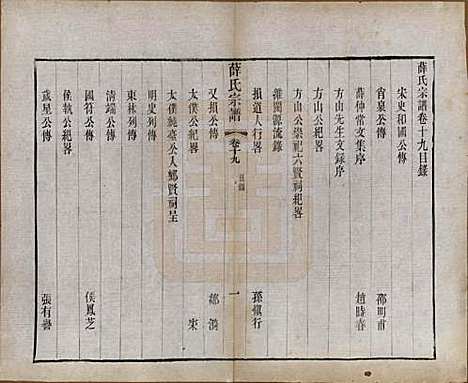 薛氏宗譜卷十九目錄
宋史和國公傳
肖泉公傳 邵明甫
薛仲常文集序 趙時春
方山先生文錄序
方山公紀畧
方山公崇祀六賢祠紀畧
維閩源流錄
損道大行畧 孫愼行
薛氏宗譜 卷十九 目錄 一
又損公傳 鄒漪
太僕公紀畧 宋
太僕純臺公入鄉賢祠呈
明史列傳
東林列傳
清端公傳
國符公傳 侯鳳芝
侯執公傳
歲星公傳 張有譽